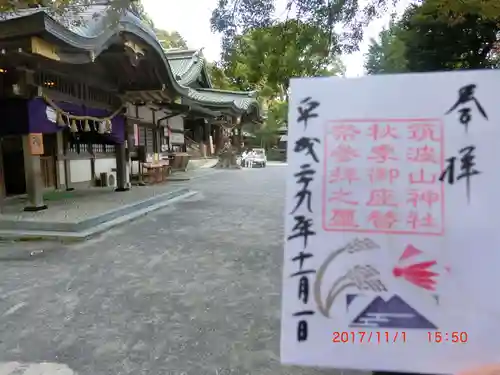 奉拝
筑波山神社
秋季御座替
祭參拜之璽
平成二十九年十一月一日
2017/11/1 15:50